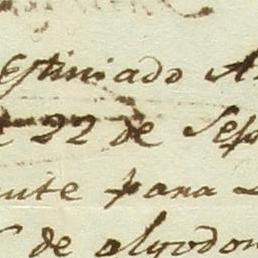 Estimado A
22 de Sep
ente para
de algodon